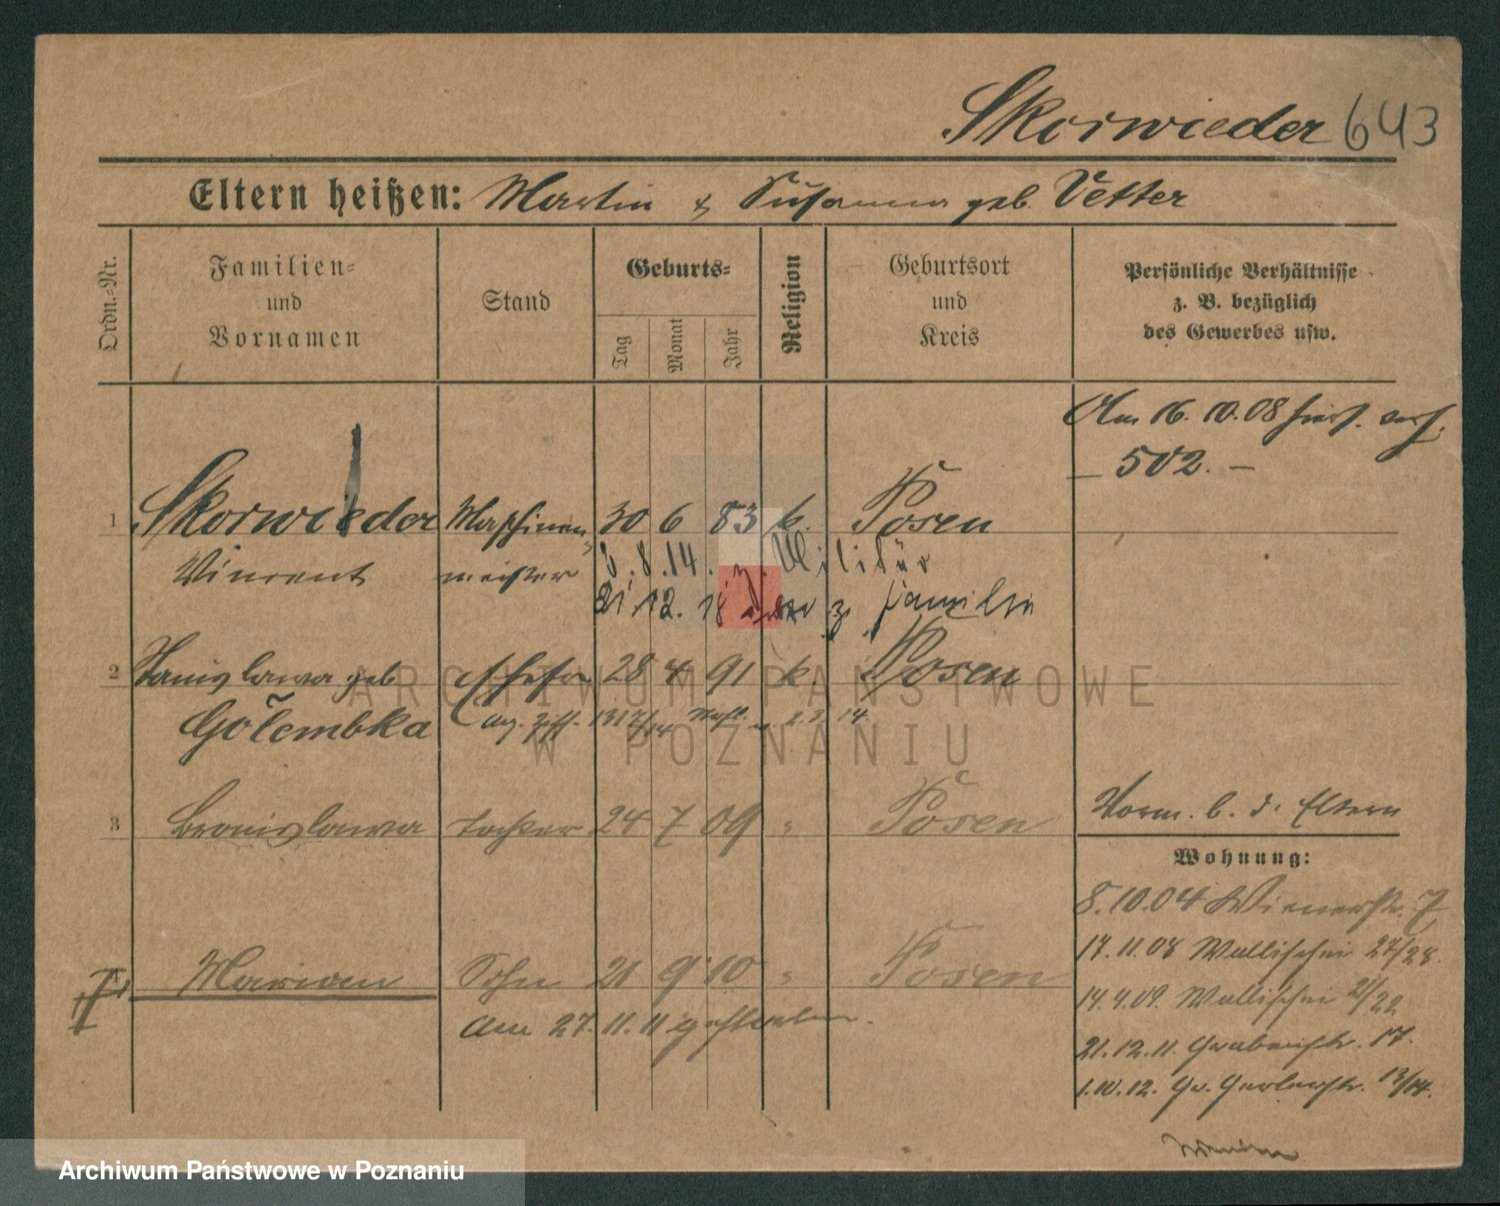 Skorwieder 643
Eltern heißen: Martin & Susanna geb. Vetter
Ordn.-Nr.
Familien-
und
Vornamen
Stand
Geburts-
Tag
Monat
Jahr
Religion
Geburtsort
und
Kreis
Persönliche Verhältnisse
z. B. bezüglich
des Gewerbes usw.
Am 16. 10. 08
– 502. –
1 Skorwieder Maschinen- 30 6 83 k. Posen
Vincent meister 3.8.14. z. Militär
21.12.18 z. Familie
2 Stanislawa geb. Ehefr. 28 4 91 k. Posen
Golembka 1317/14 2.3.14.
3 Bronislawa Tochter 24 7 09 " Posen
Vorm. b. d. Eltern
Wohnung:
8.10.04 Wienerstr. 7
17.11.08 Wallischei 27/28.
14.4.09. Wallischei 21/22
21.12.11. Grabenstr. 17.
1.10.12. Gr. Gerberstr. 13/14.
4 Marian Sohn 21 9 10 " Posen
am 27.11.11 gestorben.
ARCHIWUM PAŃSTWOWE
W POZNANIU
Archiwum Państwowe w Poznaniu